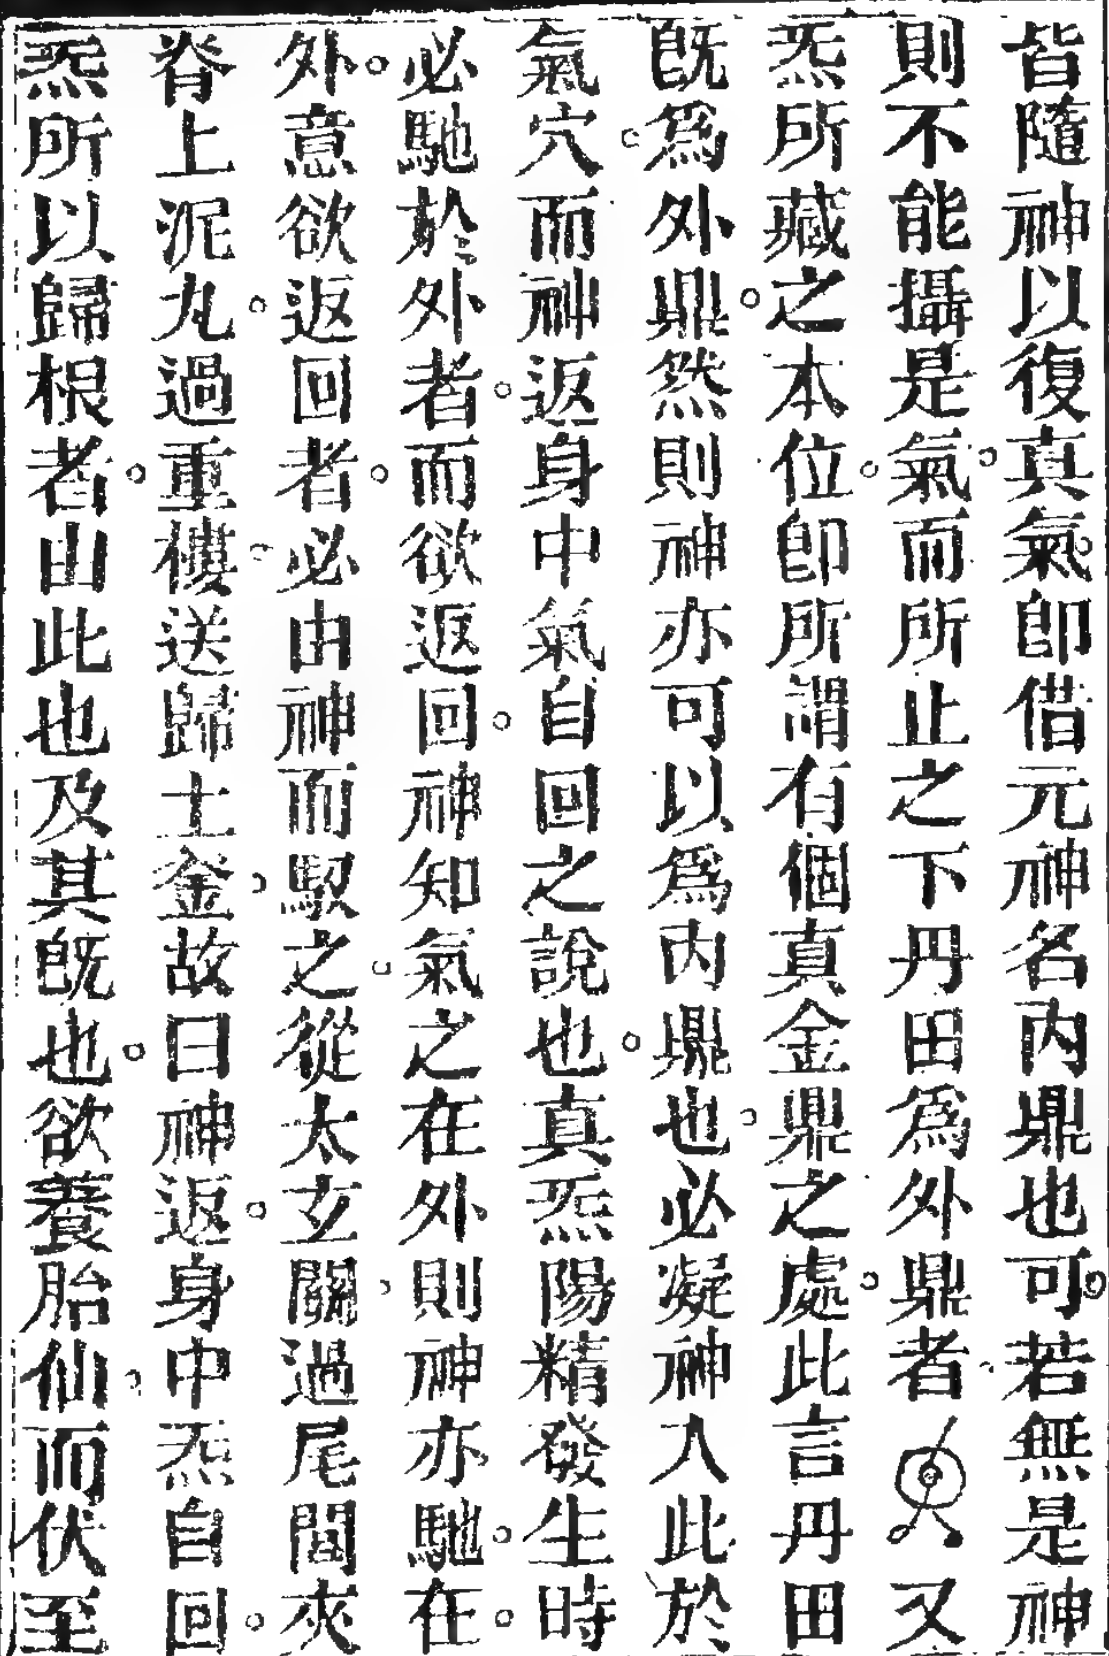 皆隨神以復真氣。即借元神名內鼎也可。若無是神
則不能攝是氣。而所止之下丹田為外鼎者。又
炁所藏之本位。即所謂有個真金鼎之處。此言丹田
既爲外鼎。然則神亦可以爲內鼎也。必凝神入此於
氣穴。而神返身中氣自回之說也。真炁陽精發生時。
必馳於外者。而欲返回。神知氣之在外則神亦馳。在
外。意欲返回者。必由神而馭之。從太玄關。過尾閭夾
脊上泥丸。過重樓。送歸土釜。故曰神返。身中炁自回。
炁所以歸根者。由此也。及其既也。欲養胎仙。而伏至